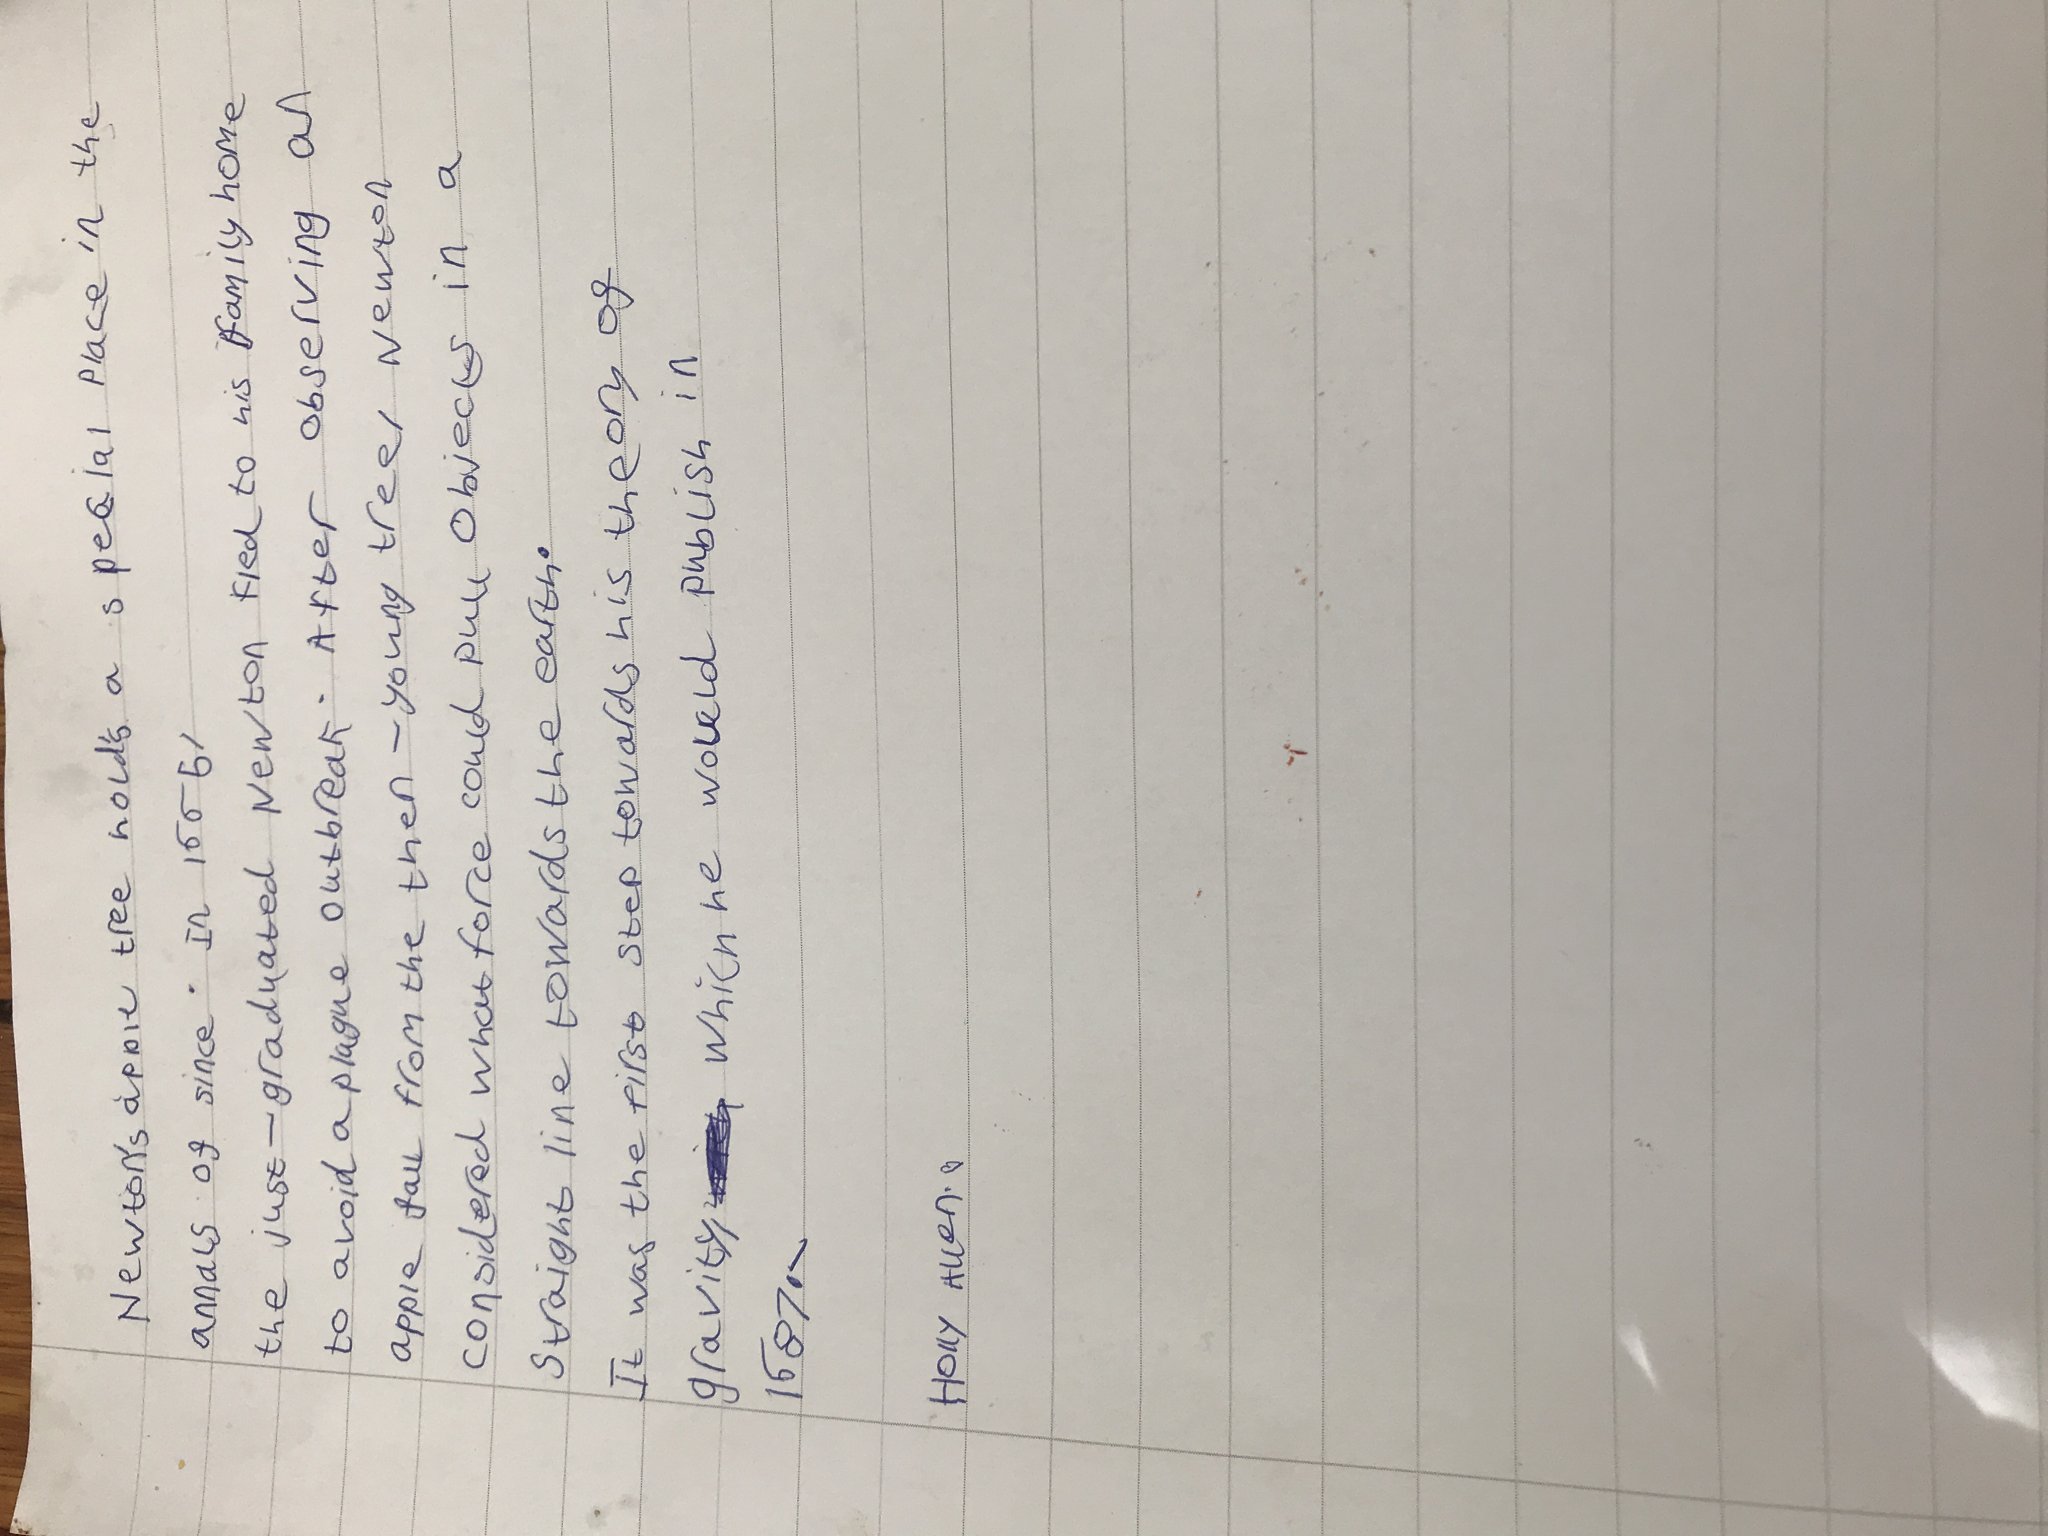 Newton's apple tree hold's a special place in the
annals of since. In 1665,
the just-graduated Newton fled to his family home
to avoid a plague outbreak. After observing an
apple fall from the then-young tree, Newton
considered what force could pull objects in a
straight line towards the earth.
It was the first step towards his theory of
gravity, which he would publish in
1687.
Holly Allen.